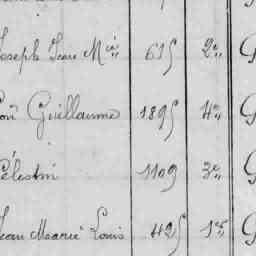 Joseph Jean M ie 615 2e G
Guillaume 1895 4e G
Célestin 1109 3e G
Jean Marie Louis 425 1re G